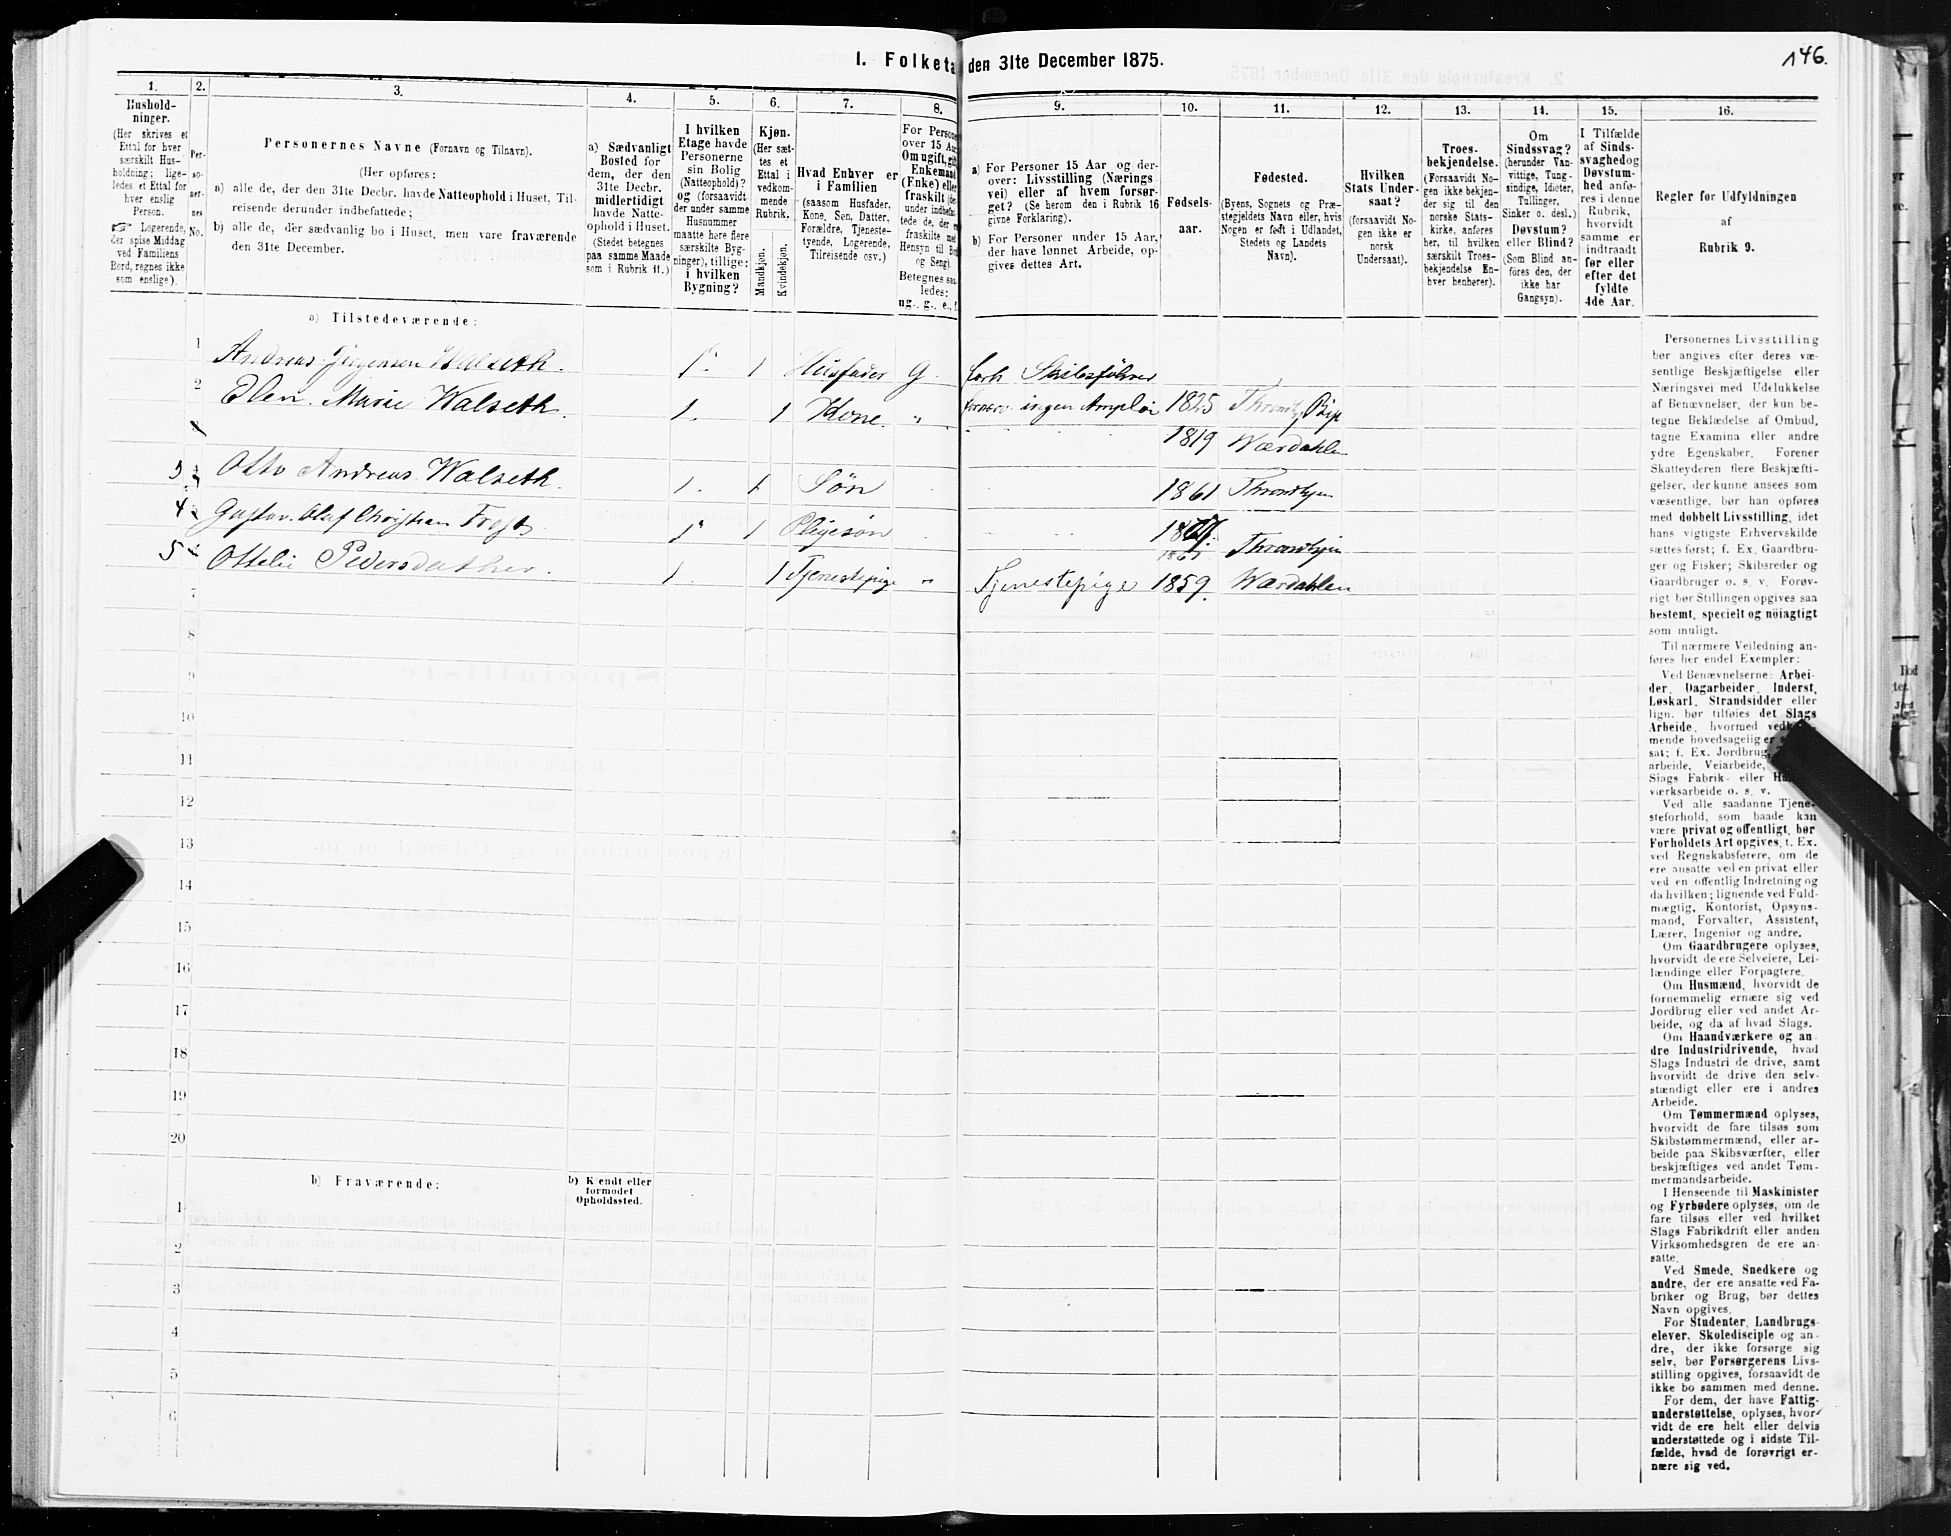 I. Folketa den 31te December 1875.
146.
1.
2.
3.
4.
5.
6.
7.
8.
9.
10.
11.
12.
13.
14.
15.
16.
Hushold-
ninger.
(Her skrives et
Ettal for hver
særskilt Hus-
holdning; lige-
ledes et Ettal for
hver enslig
Person.
☞ Logerende,
der spise Middag
ved Familiens
Bord, regnes ikke
som enslige).
Per-
so-
ner-
nes
No.
Personernes Navne (Fornavn og Tilnavn).
(Her opføres:
a) alle de, der den 31te Decbr. havde Natteophold i Huset, Til-
reisende derunder indbefattede;
b) alle de, der sædvanlig bo i Huset, men vare fraværende
den 31te December.
a) Sædvanligt
Bosted for
dem, der den
31te Decbr.
midlertidigt
havde Natte-
ophold i Huset.
(Stedet betegnes
paa samme Maade
som i Rubrik 11.)
I hvilken
Etage havde
Personerne
sin Bolig
(Natteophold)?
og (forsaavidt
der under samme
Husnummer
maatte høre flere
særskilte Byg-
ninger), tillige:
i hvilken
Bygning?
Kjøn.
(Her sæt-
tes et
Ettal i
vedkom-
mende
Rubrik.
Mandkjøn.
Kvindekjøn.
Hvad Enhver er
i Familien
(saasom Husfader,
Kone, Søn, Datter,
Forældre, Tjeneste-
tyende, Logerende,
Tilreisende osv.)
For Persone
over 15 Aar
Om ugift, gift
Enkemand
(Enke) eller
fraskilt (de
under indbefat-
tede de, der e
fraskilte med
Hensyn til Bo
og Seng).
Betegnes saa-
ledes:
ug., g., e., f.
a) For Personer 15 Aar og der-
over: Livsstilling (Nærings-
vei) eller af hvem forsør-
get? (Se herom den i Rubrik 16
givne Forklaring).
b) For Personer under 15 Aar,
der have lønnet Arbeide, op-
gives dettes Art.
Fødsels-
aar.
Fødested.
(Byens, Sognets og Præ-
stegjeldets Navn eller, hvis
Nogen er født i Udlandet,
Stedets og Landets
Navn).
Hvilken
Stats Under-
saat?
(forsaavidt No-
gen ikke er
norsk
Undersaat).
Troes-
bekjendelse.
(Forsaavidt No-
gen ikke bekjen-
der sig til den
norske Stats-
kirke, anføres
her, til hvilken
særskilt Troes-
bekjendelse En-
hver henhører).
Om
Sindssvag?
(herunder Van-
vittige, Tung-
sindige, Idioter,
Tullinger,
Sinker o. desl.)
Døvstum?
eller Blind?
(Som Blind an-
føres den, der
ikke har
Gangsyn).
I Tilfælde
af Sinds-
svaghed og
Døvstum-
hed anfø-
res i denne
Rubrik,
hvorvidt
samme er
indtraadt
før eller
efter det
fyldte
4de Aar.
Regler for Udfyldningen
af
Rubrik 9.
a) Tilstedeværende:
1 Andreas Jørgensen Walseth. 1. 1 Husfader G. forh. Skibsfører
2 Elen. Marie Walseth. 1. 1 Kone. " ingen 1825
1819 Wærdahlen
3 Otto Andreas Walseth. 1. 1 Søn 1861 Throndhjem
4 Gustav. Oluf Christian 1. 1 Pleiesøn Throndhjem
5 Ottelie Pedersdatther. 1. 1 Tjenestepige " Tjenestepige 1859. Wærdahlen
7
8
9
10
11
12
13
14
15
16
17
18
19
20
b) Fraværende:
b) Kjendt eller
formodet
Opholdssted.
1
2
3
4
5
6
Personernes Livsstilling
bør angives efter deres væ-
sentlige Beskjæftigelse eller
Næringsvei med Udelukkelse
af Benævnelser, der kun be-
tegne Beklædelse af Ombud,
tagne Examina eller andre
ydre Egenskaber. Forener
Skatteyderen flere Beskjæfti-
gelser, der kunne ansees som
væsentlige, bør han opføres
med dobbelt Livsstilling, idet
hans vigtigste Erhvervskilde
sættes først; f. Ex. Gaardbru-
ger og Fisker; Skibsreder og
Gaardbruger o. s. v. Forøv-
rigt bør Stillingen opgives saa
bestemt, specielt og nøiagtigt
som muligt.
Til nærmere Veiledning an-
føres her endel Exempler:
Ved Benævnelserne: Arbei-
der, Dagarbeider, Inderst,
Løskarl, Strandsidder eller
lign. bør tilføies det Slags
Arbeide, hvormed vedkom-
mende hovedsagelig er
sat; f. Ex. Jordbrug,
arbeide, Veiarbeide,
Slags Fabrik- eller
værksarbeide o. s. v.
Ved alle saadanne Tjene-
steforhold, som baade kan
være privat og offentligt, bør
Forholdets Art opgives, f. Ex.
ved Regnskabsførere, om de
ere ansatte ved en privat eller
ved en offentlig Indretning og
da hvilken; lignende ved Fuld-
mægtig, Kontorist, Opsyns-
mand, Forvalter, Assistent,
Lærer, Ingeniør og andre.
Om Gaardbrugere oplyses,
hvorvidt de ere Selveiere, Lei-
lændinge eller Forpagtere.
Om Husmænd, hvorvidt de
fornemmelig ernære sig ved
Jordbrug eller ved andet Ar-
beide, og da af hvad Slags.
Om Haandværkere og an-
dre Industridrivende, hvad
Slags Industri de drive, samt
hvorvidt de drive den selv-
stændigt eller ere i andres
Arbeide.
Om Tømmermænd oplyses,
hvorvidt de fare tilsøs som
Skibstømmermænd, eller ar-
beide paa Skibsværfter, eller
beskjæftiges ved andet Tøm-
mermandsarbeide.
I Henseende til Maskinister
og Fyrbødere oplyses, om de
fare tilsøs eller ved hvilket
Slags Fabrikdrift eller anden
Virksomhedsgren de ere an-
satte.
Ved Smede, Snedkere og
andre, der ere ansatte ved Fa-
briker og Brug, bør dettes
Navn opgives.
For Studenter, Landbrugs-
elever, Skoledisciple og an-
dre, der ikke forsørge sig
selv, bør Forsørgerens Livs-
stilling opgives, forsaavidt de
ikke bo sammen med denne.
For dem, der have Fattig-
understøttelse, oplyses, hvor-
vidt de ere helt eller delvis
understøttede og i sidste Til-
fælde, hvad de forøvrigt er-
nære sig ved.